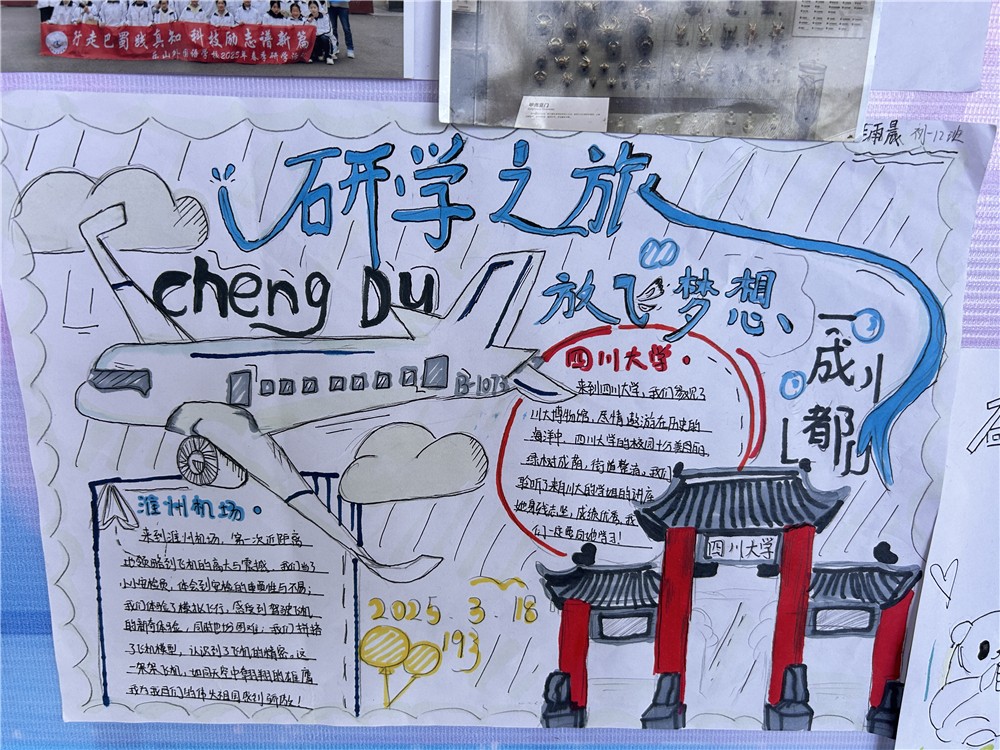 行走巴蜀践真知 科技励志谱新篇
乐山外国语学校2025年春季研学
雨晨 初一12班
研学之旅
cheng Du
放飞梦想
成都
四川
四川大学。
来到四川大学,我们参观了
川大博物馆,尽情遨游在历史的
海洋中。四川大学的校园十分美丽,
绿树成荫,街道整洁。我们
聆听了来自川大的学姐的讲座
她身残志坚,成绩优秀,我
们一定要向她学习!
B-107
淮州机场。
来到淮州机场,第一次近距离
地领略到飞机的高大与震撼,我们当了
小小安检员,体会到安检的重要性与不易;
我们体验了模拟飞行,感受到驾驶飞机
的新奇体验,同时也知困难;我们拼搭
了飞机模型,认识到了飞机的精密。这
一架架飞机,如同天空中翱翔的雄鹰
我为我们的伟大祖国感到骄傲!
2025.3.18
193
四川大学